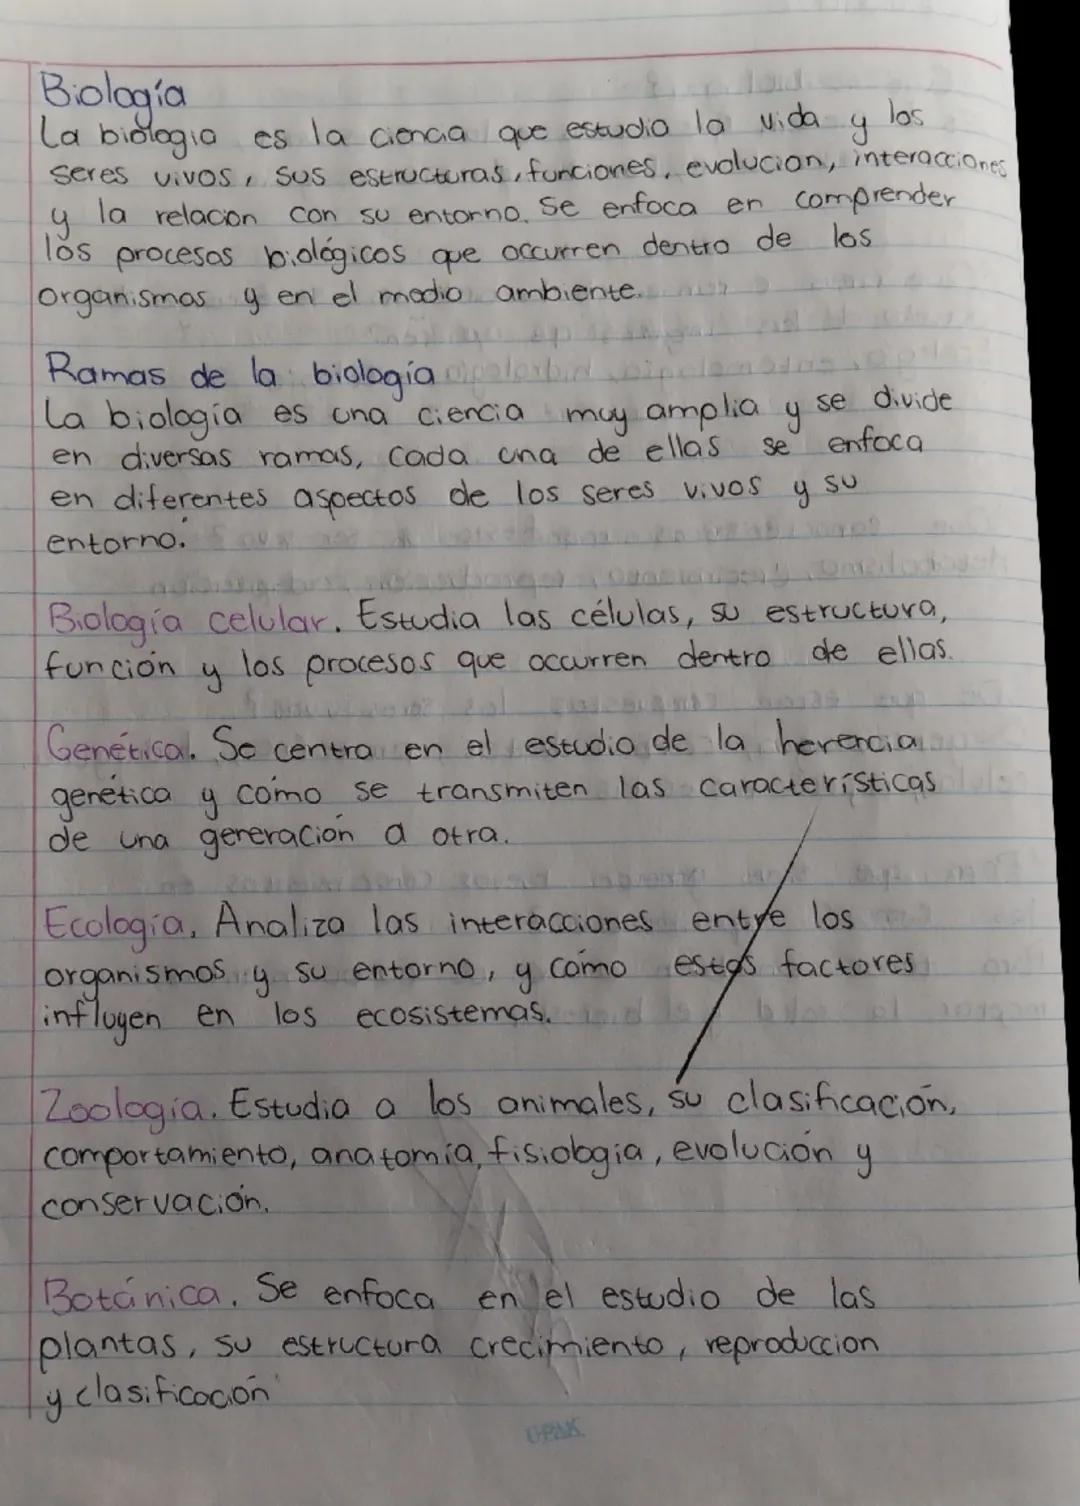 Biología
La biología es la ciencia que estudia la vida y los
seres vivos, sus estructuras, funciones, evolucion, interacciones
y la relacion con su entorno. Se enfoca en comprender
los procesos biológicos que occurren dentro de los
organismos y en el medio ambiente.
Ramas de la biología
La biología es una ciencia muy amplia y se divide
en diversas ramas, cada una de ellas se enfoca
en diferentes aspectos de los seres vivos y su
entorno.
Biología celular. Estudia las células, su estructura,
función y los procesos que occurren dentro de ellas.
Genética. Se centra en el estudio de la herencia
genética y cómo se transmiten las características
de una generación a otra.
Ecología. Analiza las interacciones entre los
organismos y su entorno, y cómo estos factores
influyen en los ecosistemas.
Zoología. Estudia a los animales, su clasificación,
comportamiento, anatomía, fisiología, evolución y
conservación.
Botánica. Se enfoca en el estudio de las
plantas, su estructura crecimiento, reproduccion
y clasificación